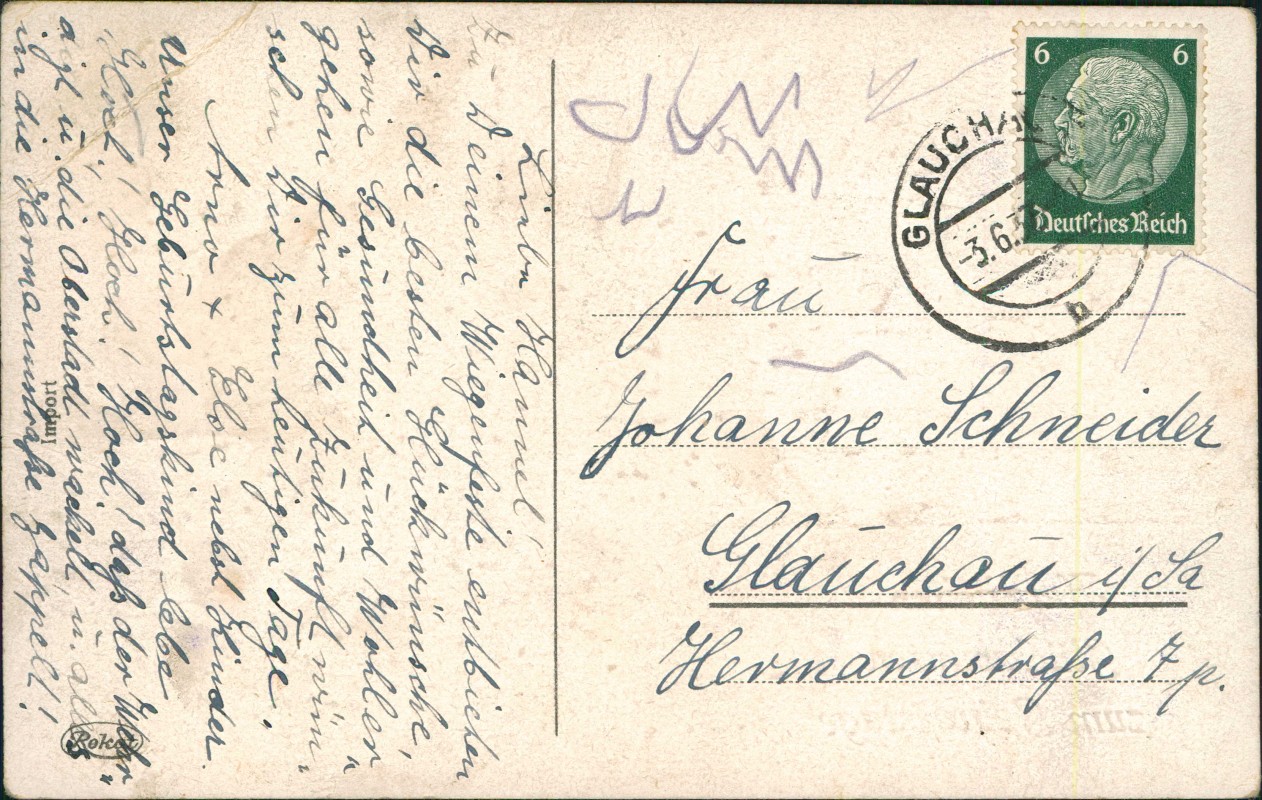 Liebe Hannel!
Zu Deinem Wiegenfeste entbieten
Dir die besten Glückwünsche,
sowie Gesundheit und Wohler-
gehen für alle Zukunft wün-
schen Dir zum heutigen Tage,
Arno + Else nebst Kinder.
Unser Geburtstagskind lebe
Hoch! Hoch! Hoch! daß der
u. die Oberstadt wackelt, u. alles
in die Hermannstraße zappelt!
Import
Rokat
6 6
Deutsches Reich
GLAUCHAU
-3.6.
b
Frau
Johanne Schneider
Glauchau i/Sa
Hermannstraße 7 p.